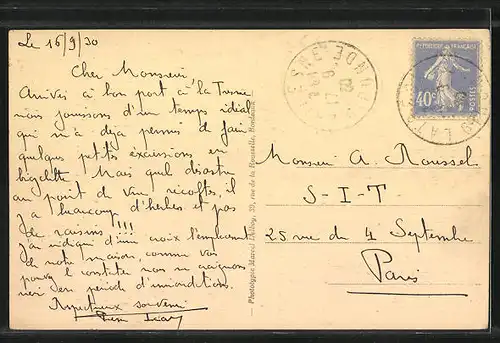 Le 16/9/30
Cher Monsieur,
Arrivés à bon port à la Tresne
nous jouissons d'un temps idéal
qui n'a déja permis de faire
quelques petites excursions en
bicyclette. Mais quel désastre
au point de vue récoltes, il
y a beaucoup d'herbes et pas
de raisins !!!
J'ai indiqué d'une croix l'emplacement
de notre maison, comme vous
pouvez le constater nous ne craignons
rien en période d'inondations.
Respectueux souvenir
Monsieur A. Roussel
S-I-T
25 rue du 4 Septembre
Paris
Phototypie Marcel Delboy, rue de la
RÉPUBLIQUE FRANÇAISE
40c
POSTES
GIRONDE